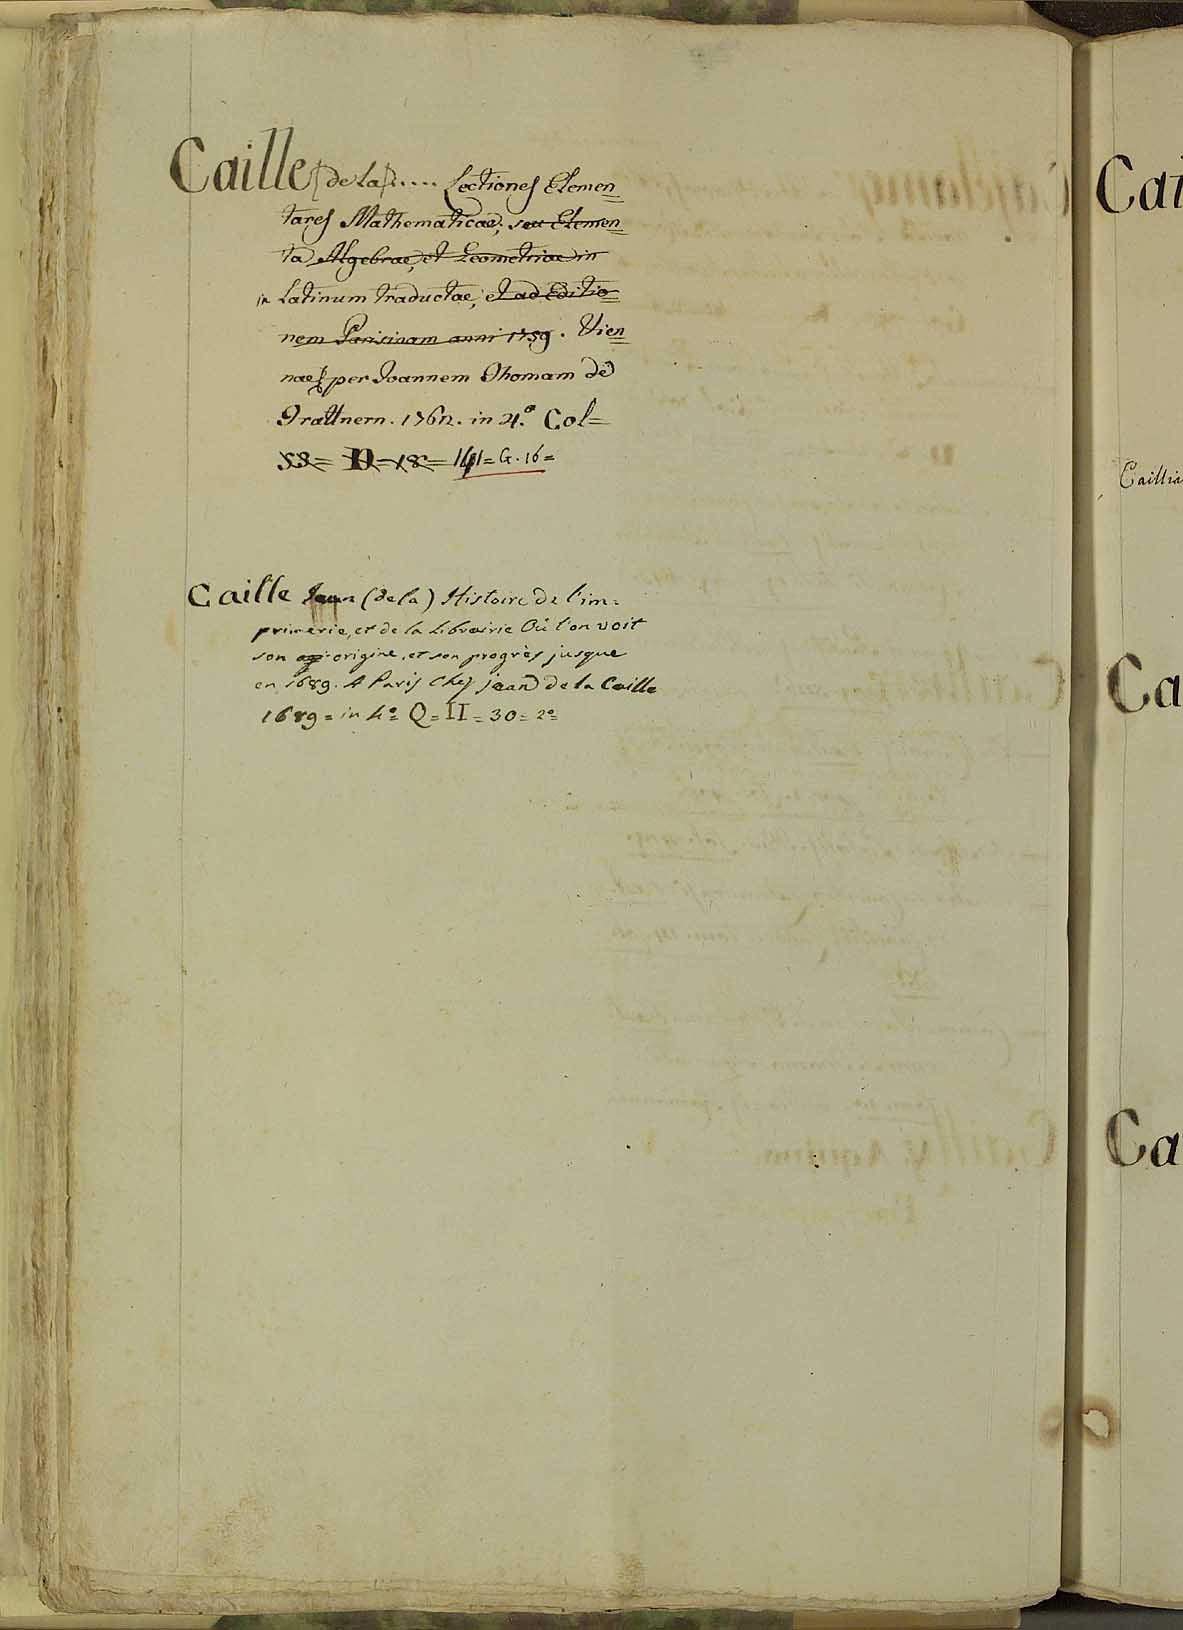 Caille (de la) .... Lectiones Elemen=
tares Mathematicae; seu Elemen=
ta Algebrae, et Geometriae in
in Latinum traductae, et ad Editio=
nem Parisinam anni 1759. Vien=
nae per Joannem Thomam de
Trattnern. 1762. in 4.° Col=
53= D=18= 141= G. 16=
Caille Jean (de la) Histoire de l'im=
primerie, et de la Librairie Où l'on voit
son origine, et son progrès jusque
en 1689. A Paris Chez jean de la Caille
1689= in 4°= Q= II= 30= 2°=
Cai
Caillia
Ca
Ca